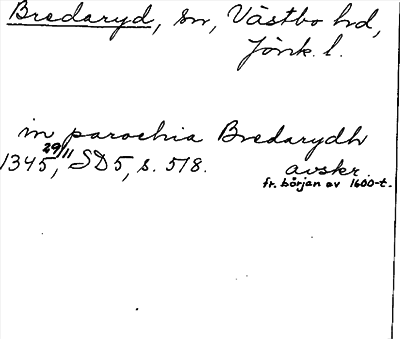 Bredaryd, sn, Västbo hd,
Jönk. l.
in parochia Bredarydh
1345 29/11, SD 5, s. 518. avskr.
fr. början av 1600-t.